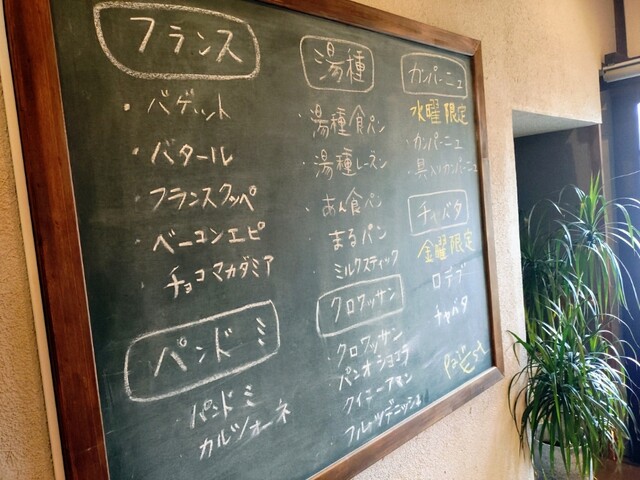 フランス
・バゲット
・バタール
・フランスクッペ
・ベーコンエピ
・チョコマカダミア
パンドミ
パンドミ
カルツォーネ
湯種
・湯種食パン
・湯種レーズン
・あん食パン
・まるパン
・ミルクスティック
クロワッサン
・クロワッサン
パンオショコラ
クイニーアマン
フルーツデニッシュ
カンパーニュ
水曜限定
・カンパーニュ
・具入りカンパーニュ
チャバタ
金曜限定
ロデブ
チャバタ